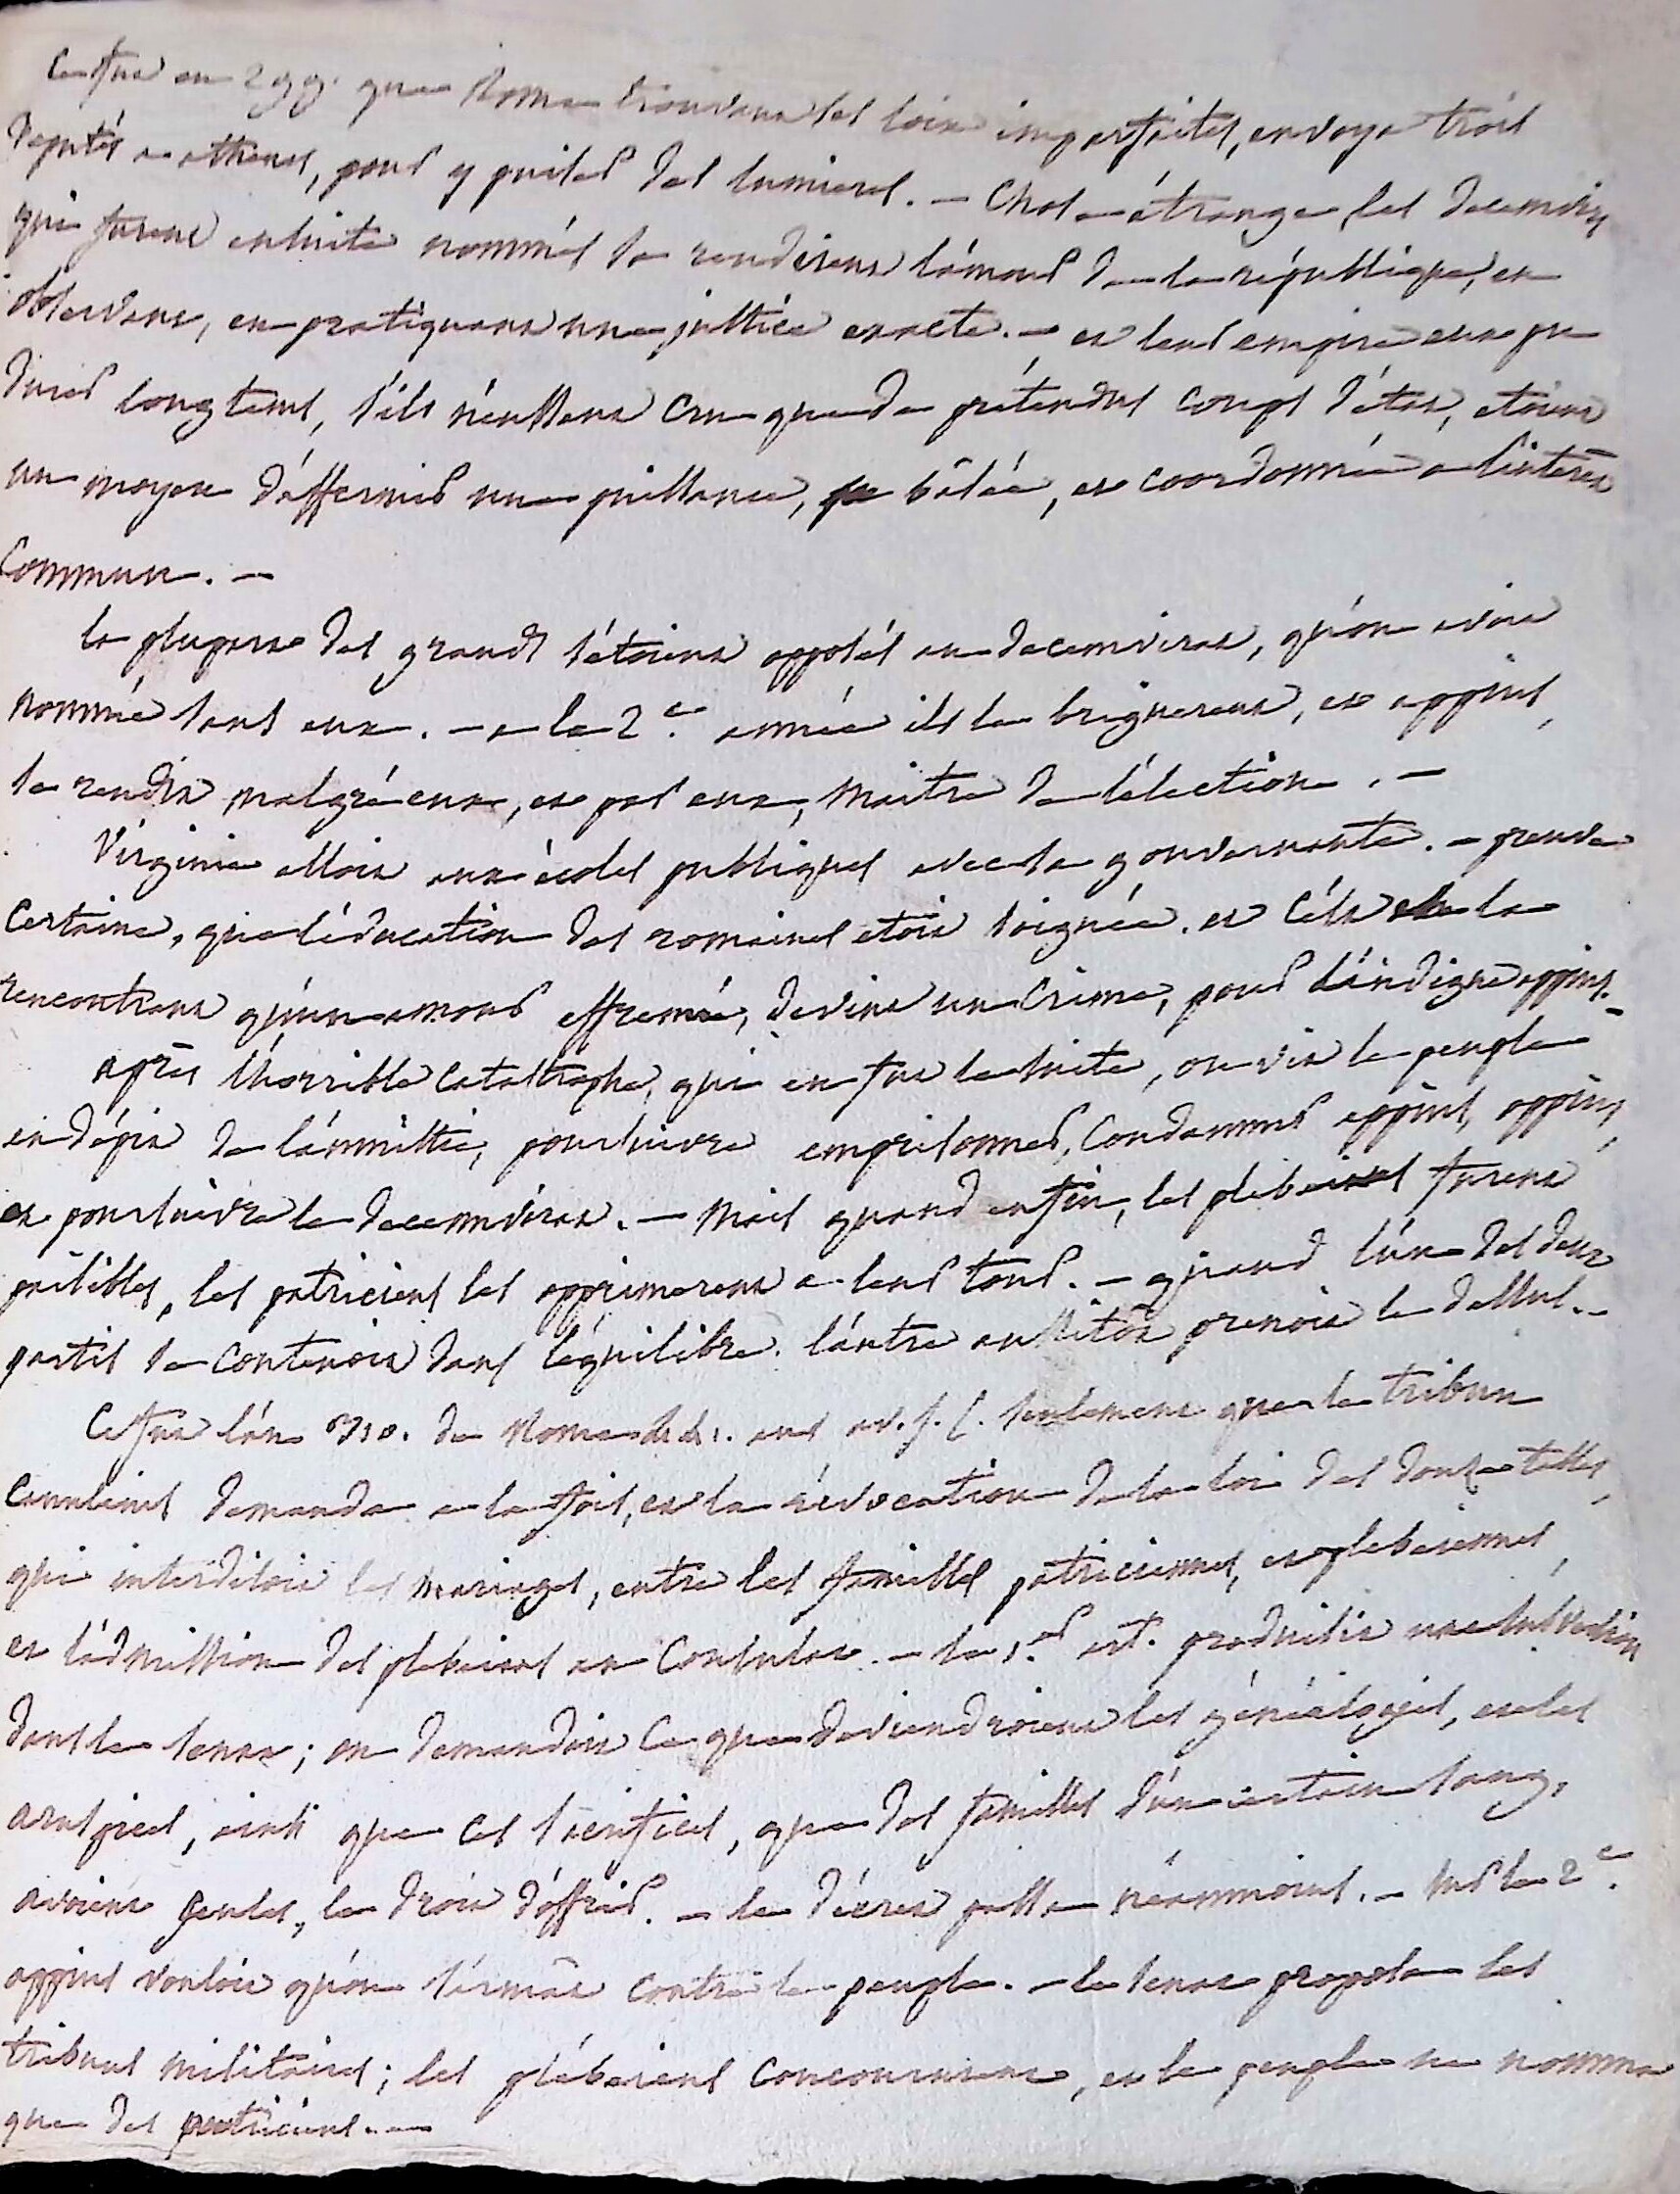 Ce fut en 299. que Rome trouvant ses loix imparfaites, envoya trois
députés a athenes, pour y puiser des lumieres. — Chose étrange, les decemvirs
qui furent ensuite nommés se rendirent l'amour de la république, en
observant, en pratiquant une justice exacte. — et leur empire eut pu
durer longtems, s'ils n'eussent cru que de prétendus coups d'état, etoient
un moyen d'affermir une puissance, basée, et coordonnée a l'interêt
commun. —
la plupart des grands s'étoient opposés au decemvirat, qu'on avoit
nommé sans eux. — a la 2e. année ils le briguerent, et appius,
se rendit malgré eux, et par eux, maitre de l'élection. —
Virginie alloit aux écoles publiques avec sa gouvernante. — preuve
certaine, que l'éducation des romaines etoit soignée. et c'est en la
rencontrant qu'un amour effrené, devint un crime, pour l'indigne appius. —
après l'horrible catastrophe, qui en fut la suite, on vit le peuple
en dépit de l'amnistie, poursuivre emprisonner, condamner appius, oppius,
et poursuivre le decemvirat. — mais quand enfin, les plebeiens furent
paisibles, les patriciens les opprimerent a leur tour. — quand l'un des deux
partis se contenoit dans l'équilibre. l'autre aussitôt prenoit le dessus. —
Ce fut l'an 310. de Rome 441. ans av. J. C. seulement que le tribun
Canuleius demanda a la fois, et la révocation de la loi des douze tables,
qui interdisoit les mariages, entre les familles patriciennes, et plebeiennes,
et l'admission des plebeiens au consulat. — le 1.er art. produisit une subversion
dans le senat; on demandoit ce que deviendroient les généalogies, et les
aruspices, ainsi que ces sacrifices, que des familles d'un certain sang,
avoient seules, le droit d'offrir. — le décret passa néanmoins. — sur le 2e.
appius vouloit qu'on s'armât contre le peuple. — le senat proposa les
tribuns militaires; les plébeiens concoururent, et le peuple ne nomma
que des patriciens. —